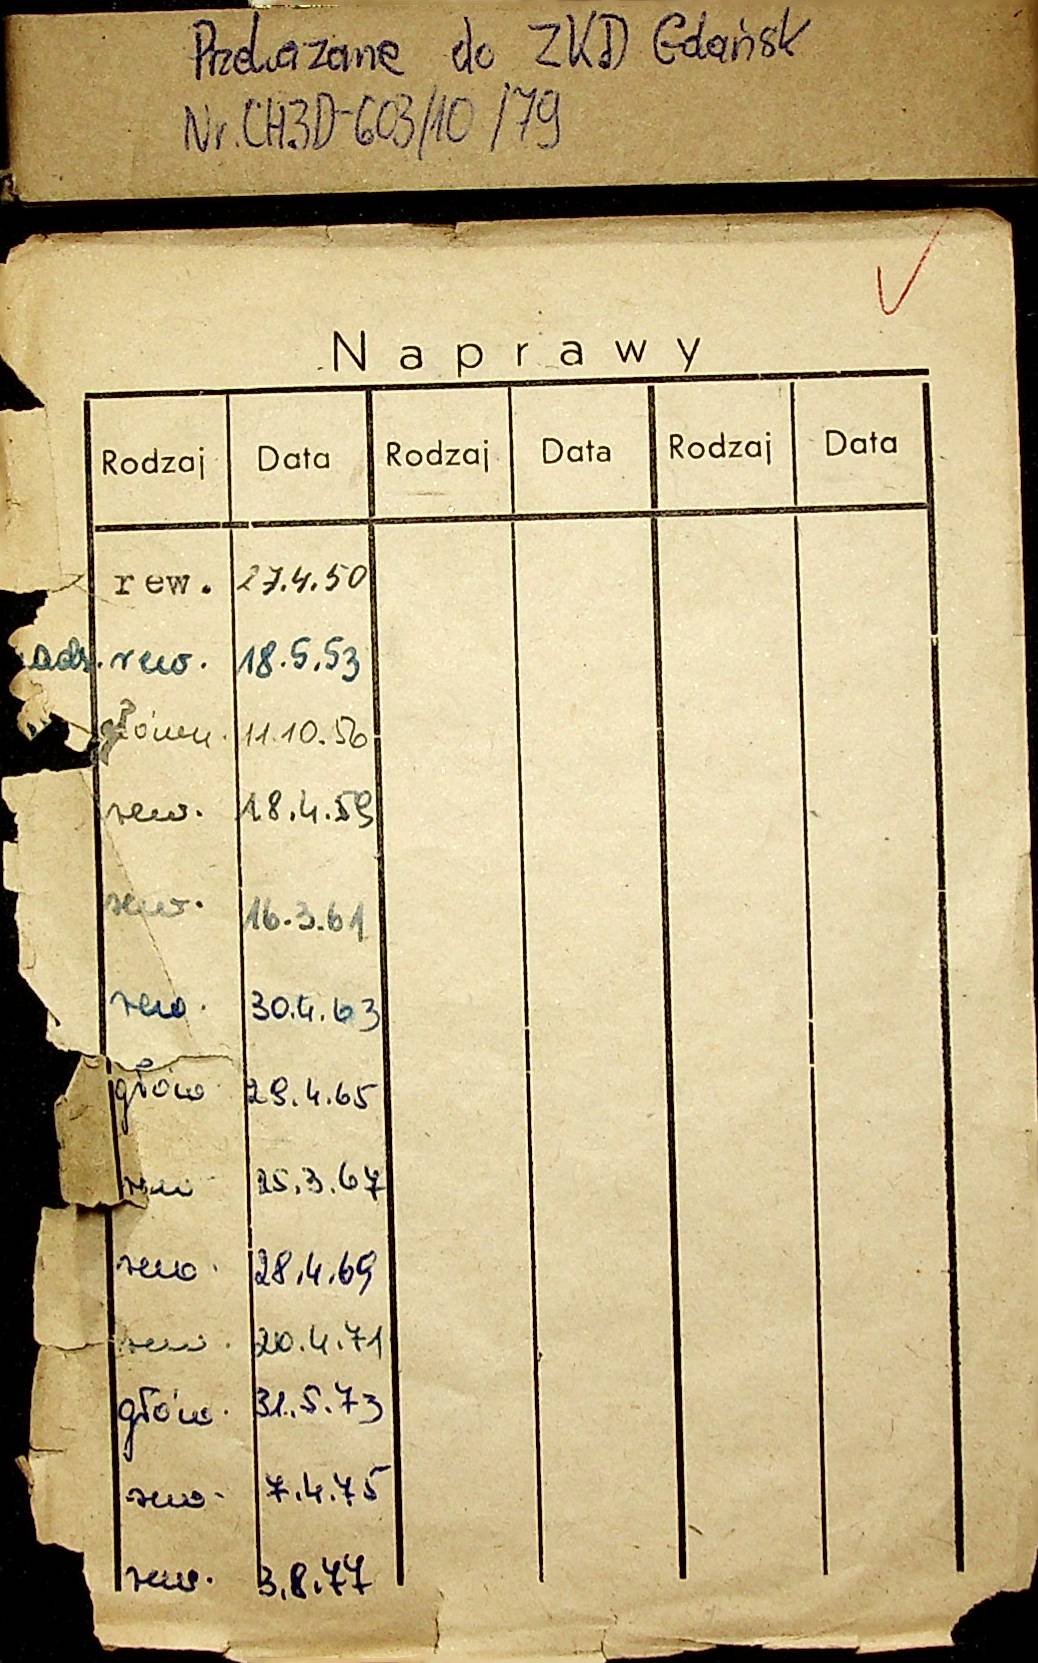 Przekazane do ZKD Gdańsk
Nr. CH3D-603/10/79
Naprawy
Rodzaj Data Rodzaj Data Rodzaj Data
rew. 27.4.50
rew. 18.5.53
główn. 11.10.56
rew. 18.4.59
rew. 16.3.61
rew. 30.4.63
główn 29.4.65
rew 25.3.67
rew. 28.4.69
rew. 20.4.71
główn. 31.5.73
rew. 7.4.75
rew. 3.8.77